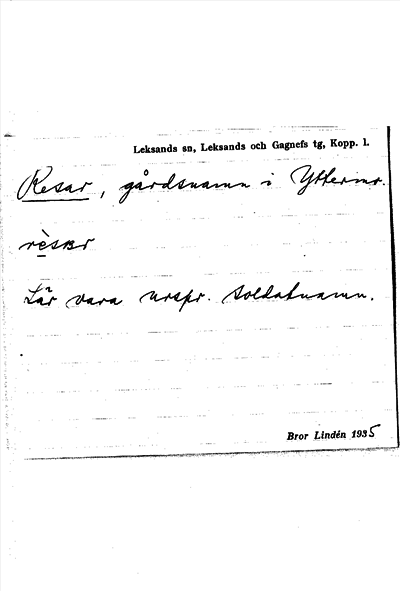 Leksands sn, Leksands och Gagnefs tg, Kopp. l.
Resar, gårdsnamn i Yttermo.
Lär vara urspr. soldatnamn.
Bror Lindén 1935